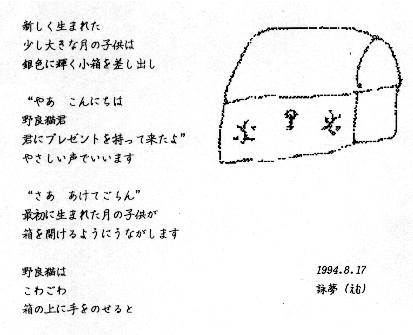 新しく生まれた
少し大きな月の子供は
銀色に輝く小箱を差し出し
“やあ　こんにちは
野良猫君
君にプレゼントを持って来たよ”
やさしい声でいいます
“さあ　あけてごらん”
最初に生まれた月の子供が
箱を開けるようにうながします
野良猫は
こわごわ
箱の上に手をのせると
1994.8.17
詠夢（えむ）